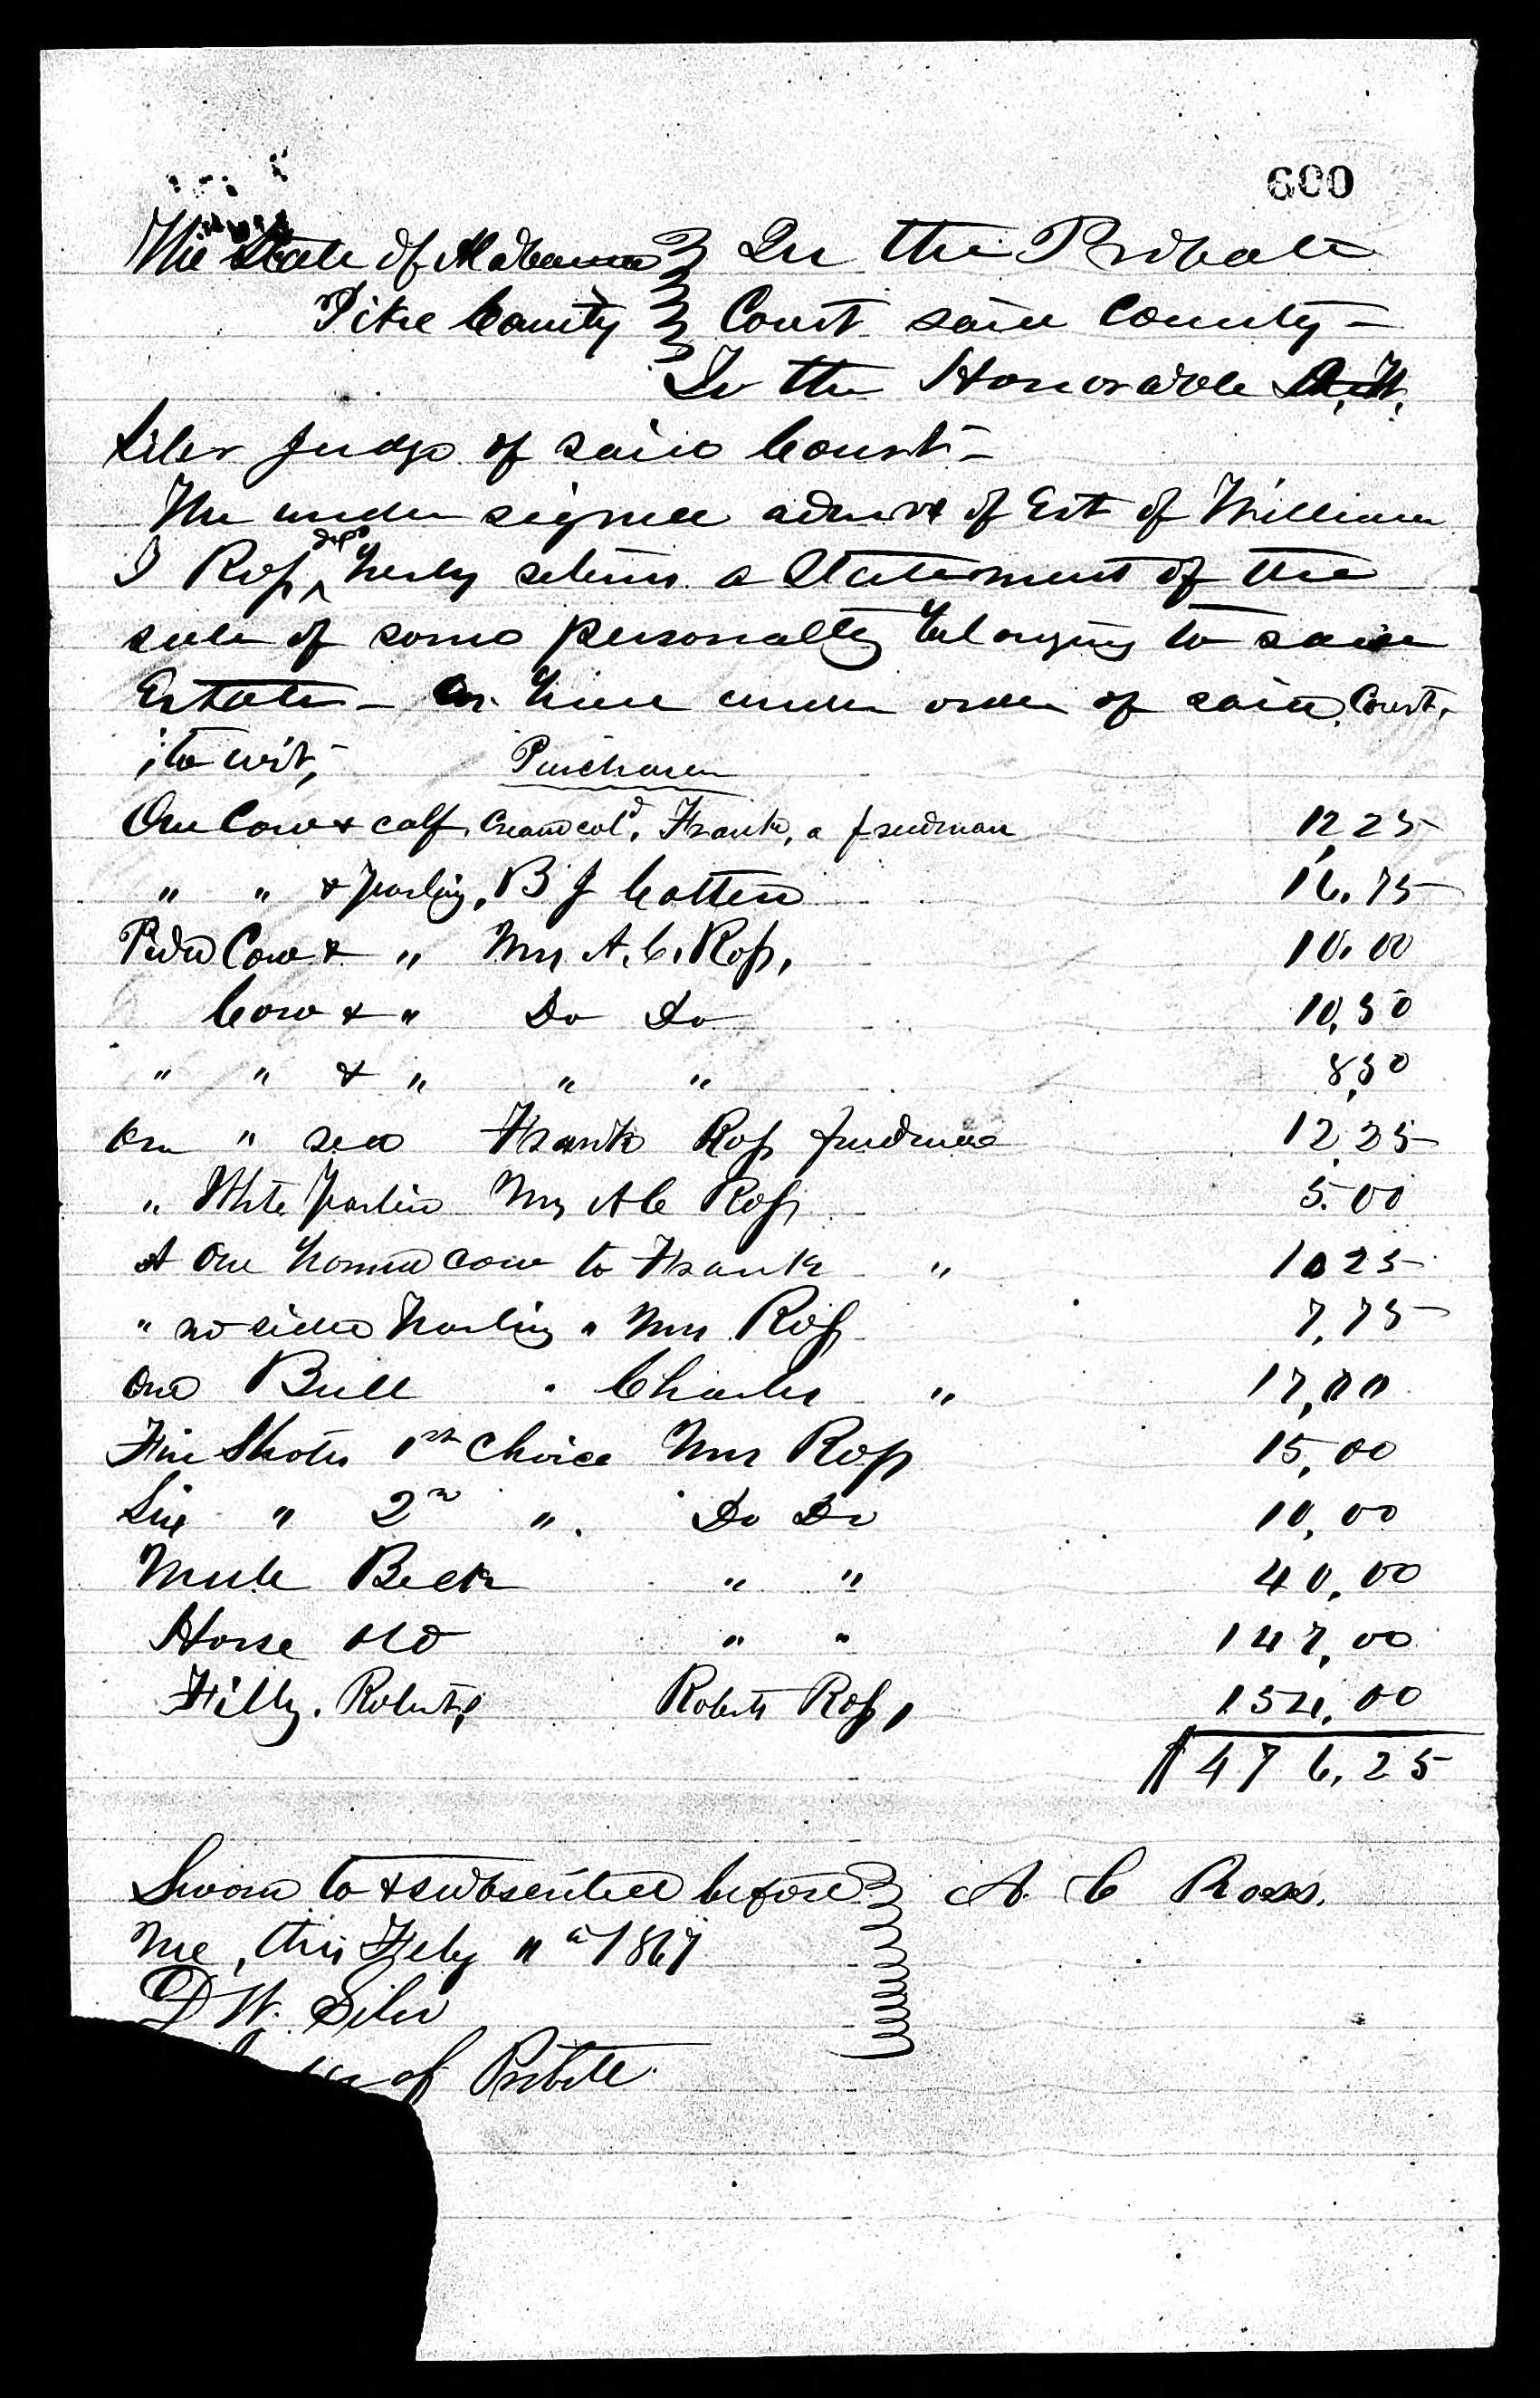 600
The State of Alabama In the Probate
Pike County Court said County -
To the Honorable
Siler Judge of said Court -
The undersigned admrx of Est of William
I Ross, decd herby returns a Statement of the
sale of some personalty belonging to said
Estate - under order of said Court,
; to wit; Purchaser
One Cow & calf, Cream cold, Frank, a freedman 12,25
" " & yearling, B J Cotten 16.75
Pided Cow & " Mrs A. C. Ross, 10.00
Cow & " Do Do 10,50
" " & " " " 8,50
One " red Frank Ross freedman 12,25
" White yearlin Mrs A C Ross 5.00
One horned cow to Frank " 10 25
" red sided yearling " Mrs Ross 7,75
One Bull " Charles " 17,00
Five Shotes 1st Choice Mrs Ross 15,00
Six " 2nd " Do Do 10,00
Mule Beck " " 40,00
Horse old " " 147,00
Filly. Robert Ross, 154,00
$476,25
Sworn to & subscribed before A. C Ross.
Me, this Feby " 1867
D W. Siler
of Probate